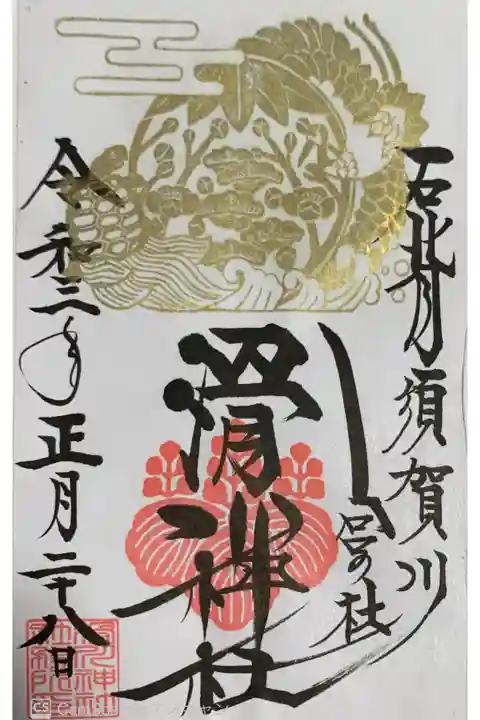 石背須賀川
宮の社
滑神社
令和三年正月二十八日